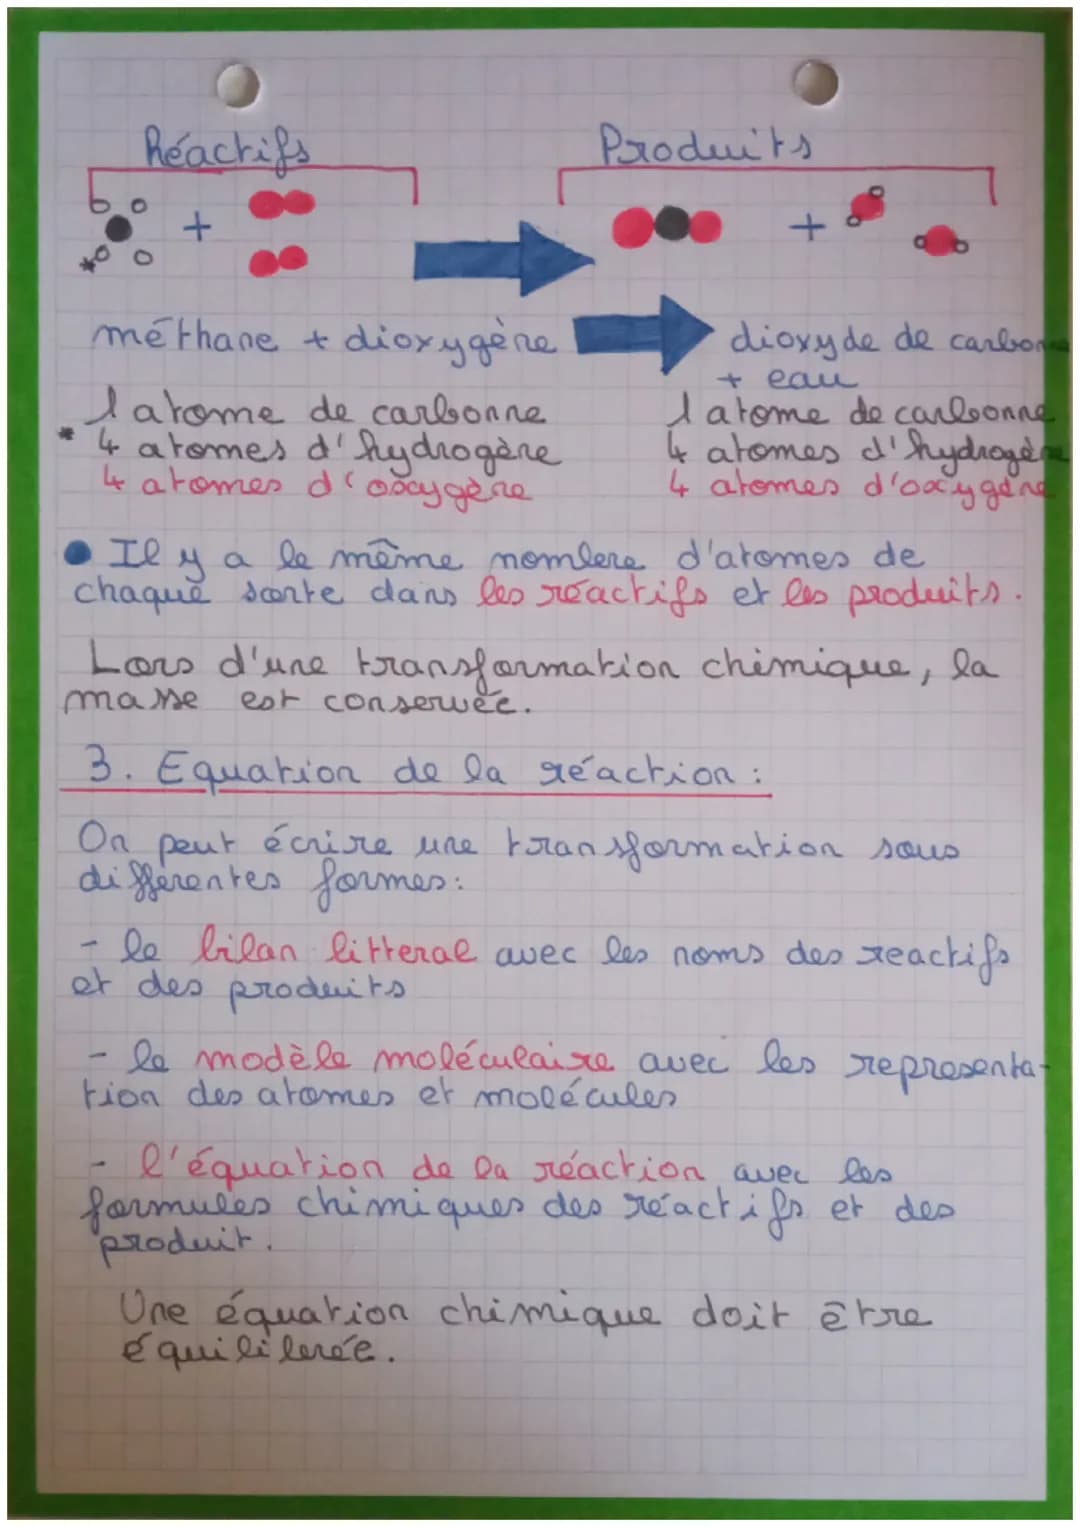 Réactifs
Produits
+
+
*
méthane + dioxygène
dioxyde de carbone
+ eau
1 atome de carbonne
* 4 atomes d'hydrogène
4 atomes d'oxygène
1 atome de carbonne
4 atomes d'hydrogène
4 atomes d'oxygène
• Il y a le même nombre d'atomes de
chaque sorte dans les réactifs et les produits.
Lors d'une transformation chimique, la
masse est conservée.
3. Equation de la réaction :
On peut écrire une transformation sous
différentes formes:
- le bilan litteral avec les noms des reactifs
et des produits
- le modèle moléculaire avec les representa-
tion des atomes et molécules
- l'équation de la réaction avec les
formules chimiques des réactifs et des
produit.
Une équation chimique doit être
équilibrée.